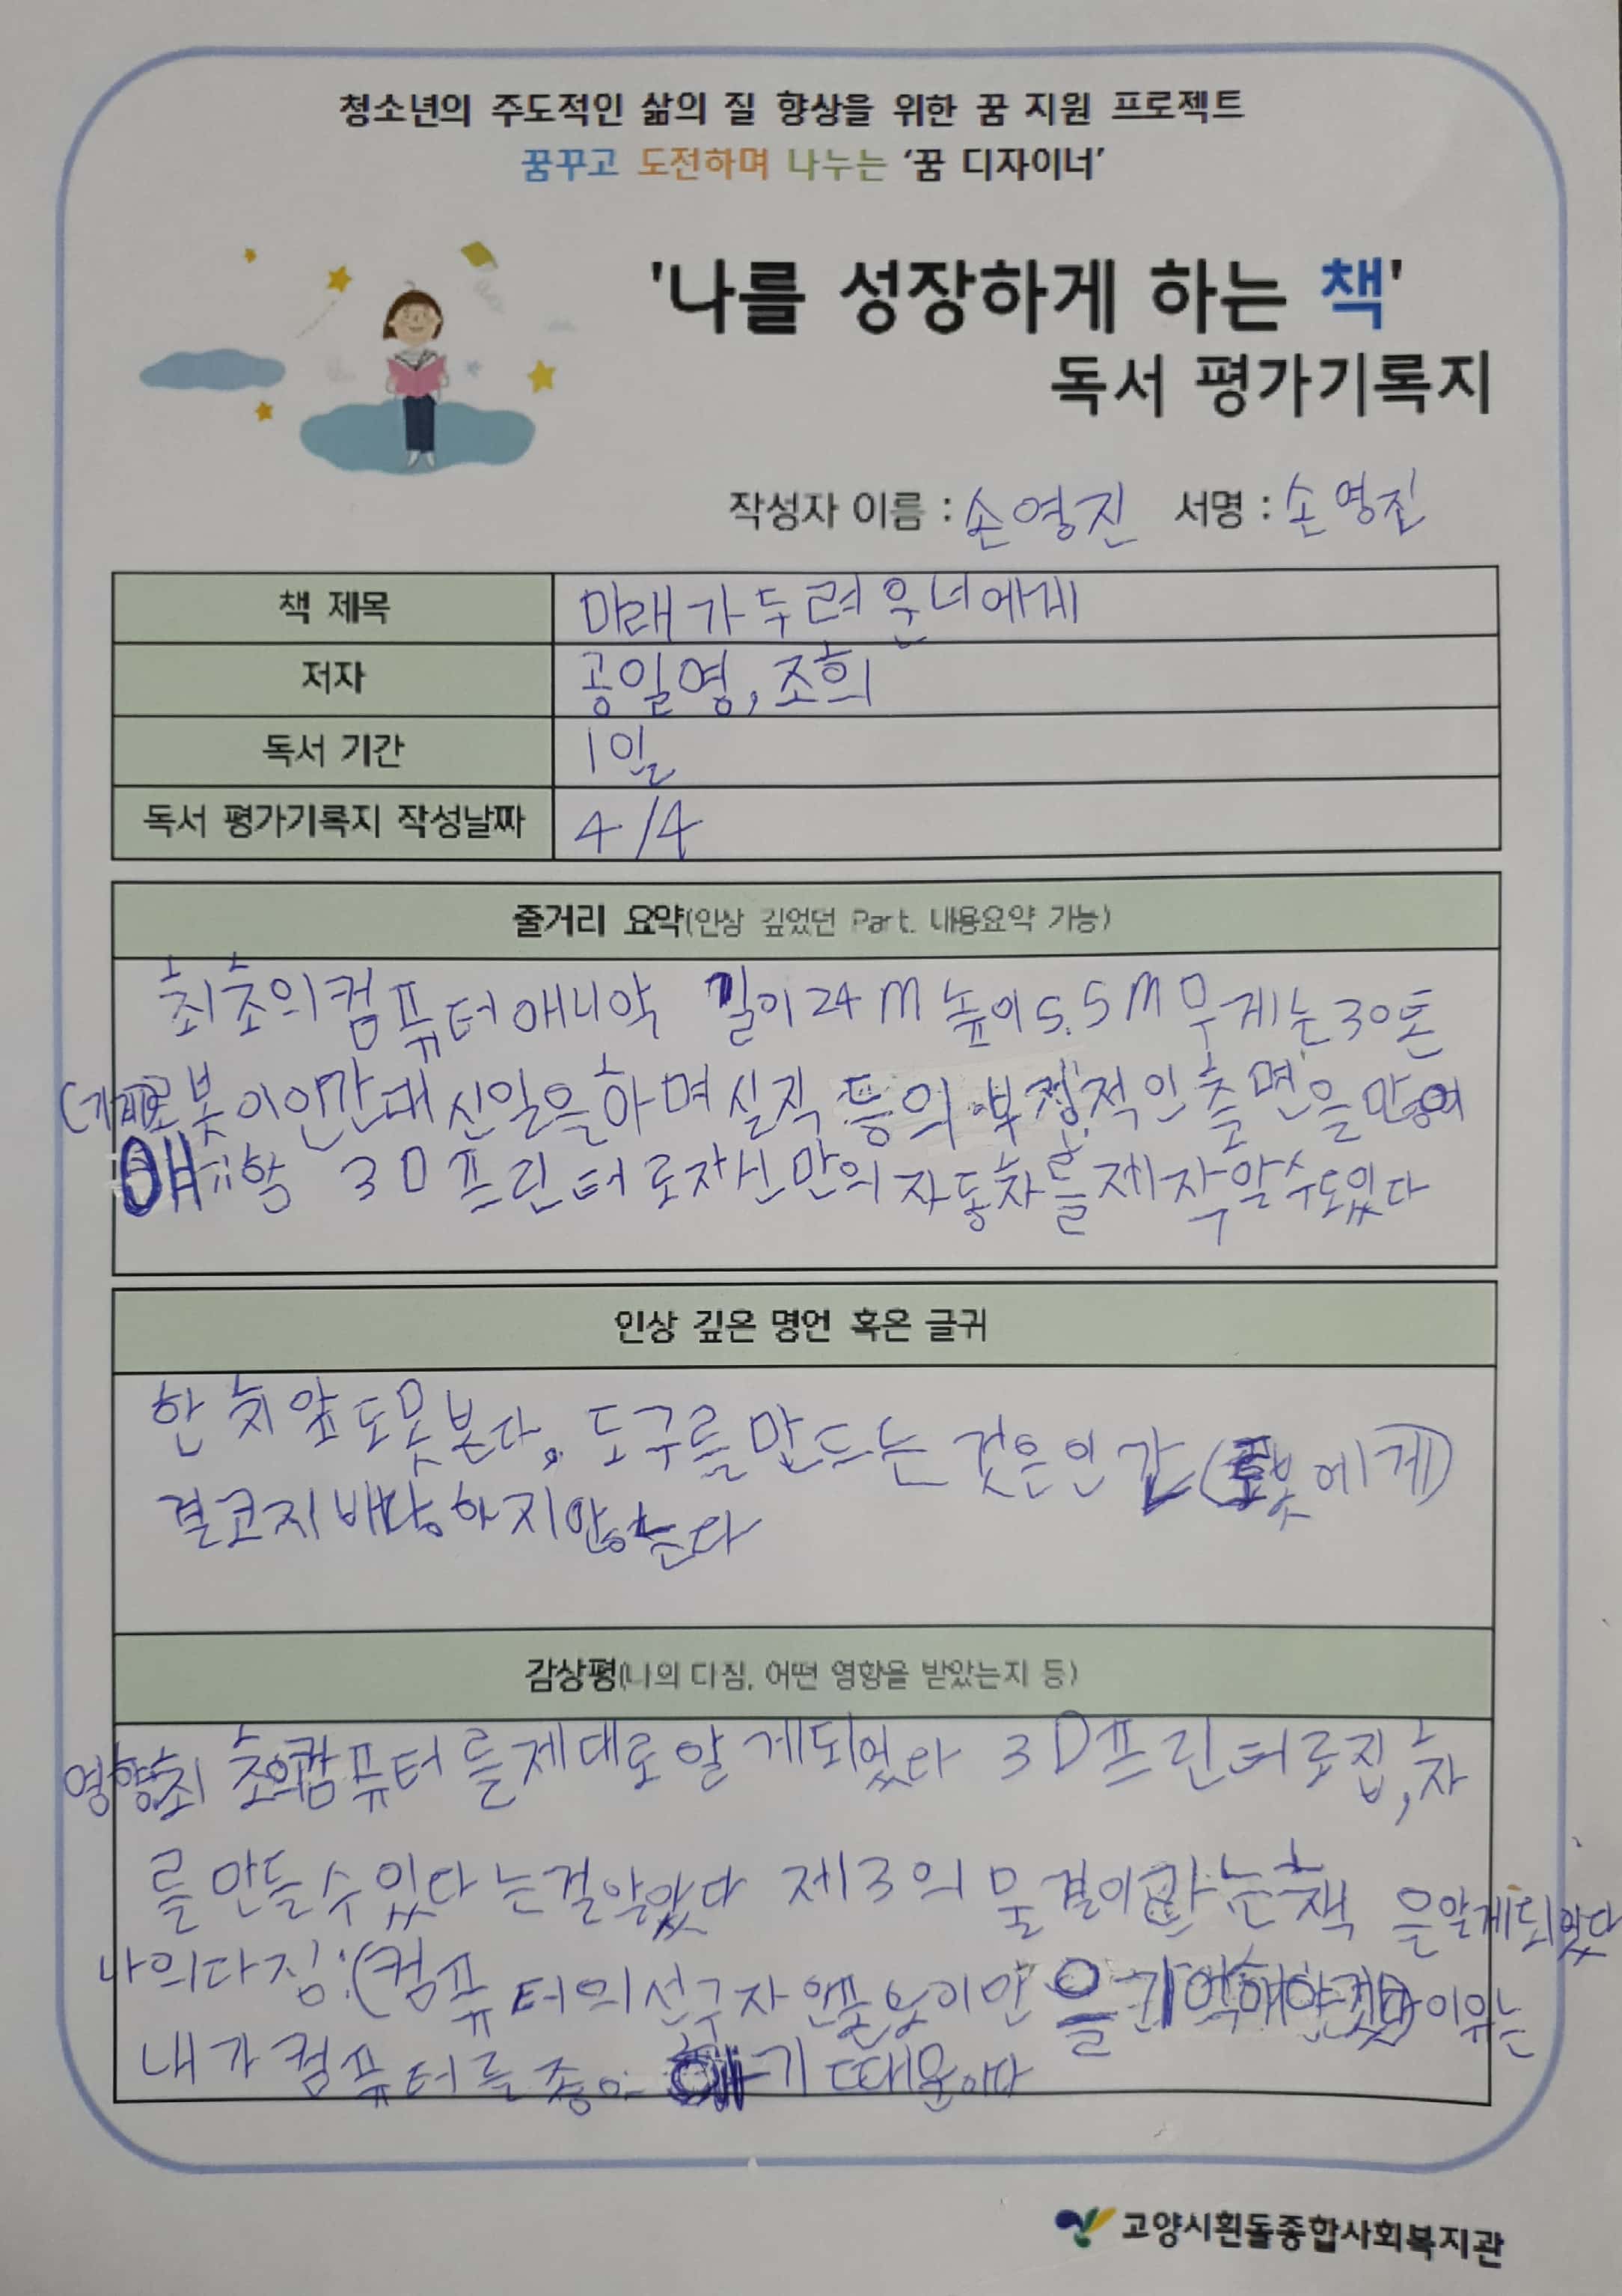 청소년의 주도적인 삶의 질 향상을 위한 꿈 지원 프로젝트
꿈꾸고 도전하며 나누는 '꿈 디자이너'
'나를 성장하게 하는 책'
독서 평가기록지
작성자 이름 : 손영진 서명 : 손영진
책 제목 미래가 두려운 너에게
저자 공일영, 조희
독서 기간 1일
독서 평가기록지 작성날짜 4/4
줄거리 요약(인상 깊었던 Part. 내용요약 가능)
최초의컴퓨터애니악 길이24M 높이5.5M 무게는30톤
로봇이인간대신일을하며실직 등의 부정적인측면을
3D프린터로자신만의자동차를제작할수도있다
인상 깊은 명언 혹은 글귀
한 치앞도못본다. 도구를만드는 것은인간(로봇에게)
결코지배당하지않는다
감상평(나의 다짐, 어떤 영향을 받았는지 등)
영향:최초의컴퓨터를제대로알게되었다 3D프린터로집,차
를만들수있다는걸알았다 제3의 물결이라는책 을알게되었다
나의다짐:(컴퓨터의선구자 을기억해야겠다)이유는
내가컴퓨터를좋아 하기 때문이다
고양시흰돌종합사회복지관